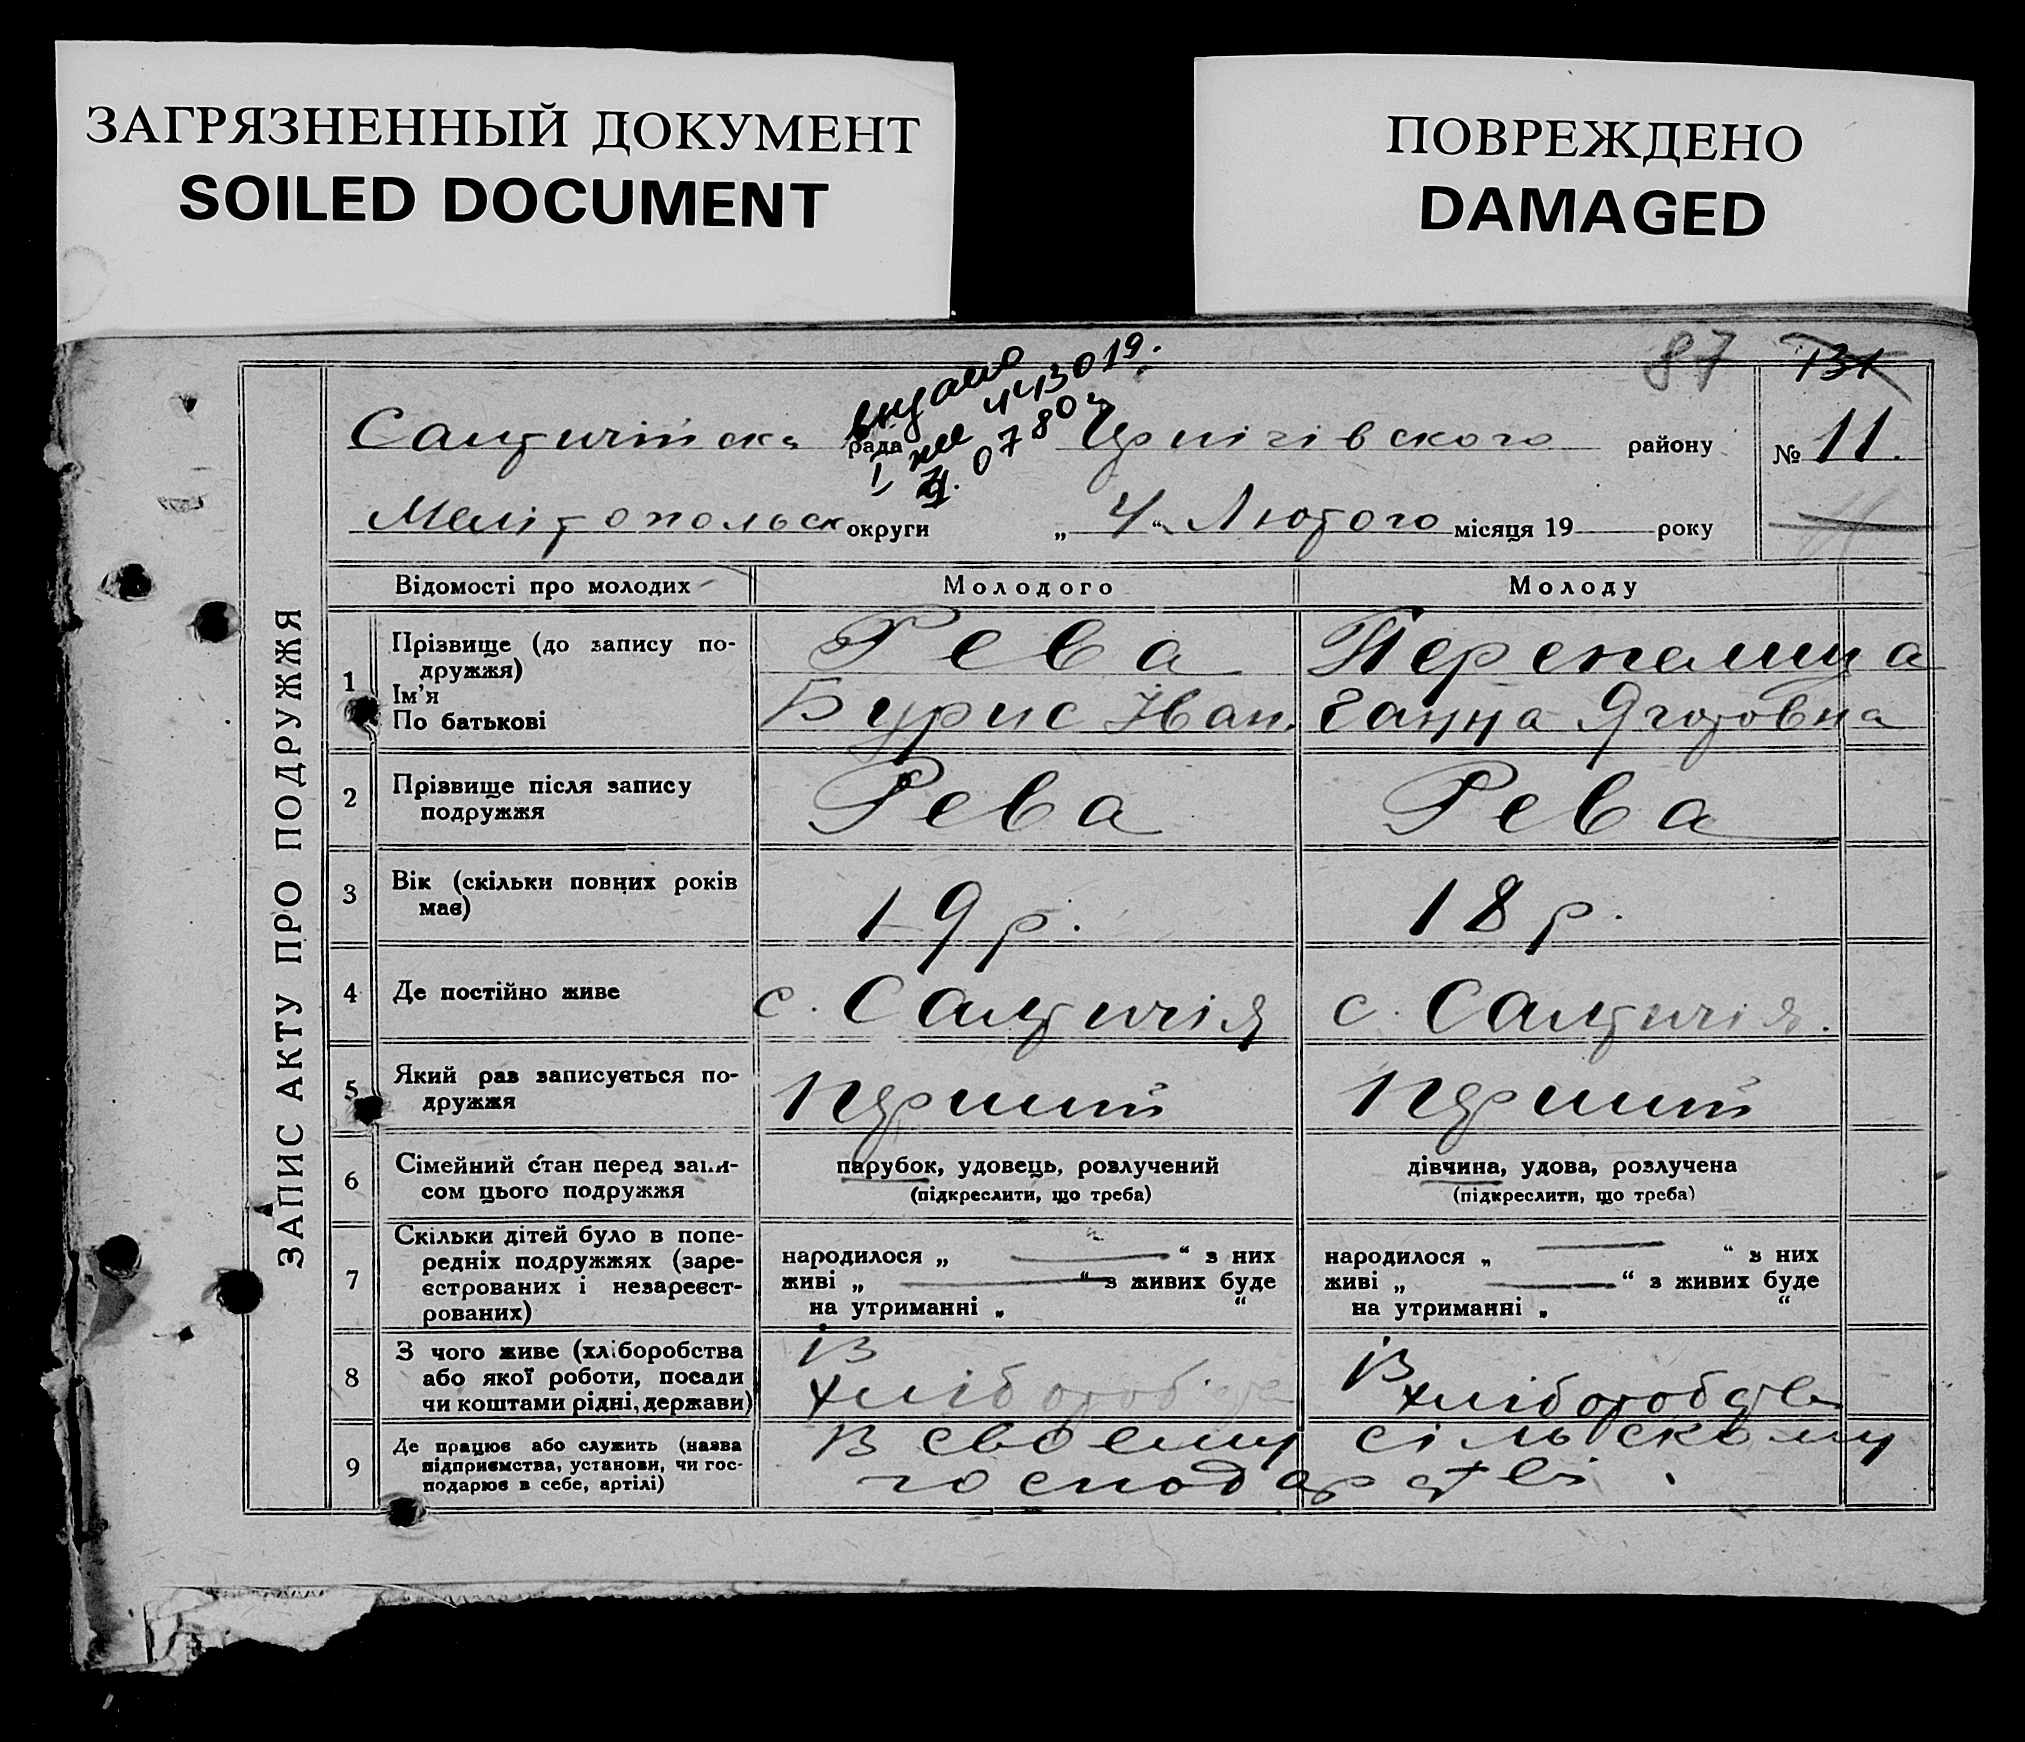 ЗАГРЯЗНЕННЫЙ ДОКУМЕНТ
SOILED DOCUMENT
ПОВРЕЖДЕНО
DAMAGED
87 131
видано
443019.
0780
Салтичійска рада Чернігівского району № 11.
Мелітопольск округи „ 4 “ Лютого місяця 19 року
ЗАПИС АКТУ ПРО ПОДРУЖЖЯ
Відомості про молодих Молодого Молоду
1 Прізвище (до запису по-
дружжя) Рева Перепелица
Ім'я
По батькові Бурис Іван. Ганна Яготовна
2 Прізвище після запису
подружжя Рева Рева
3 Вік (скільки повних років
має) 19 р. 18 р.
4 Де постійно живе с. Салтичія с. Салтичія.
5 Який раз записується по-
дружжя Перший Перший
6 Сімейний стан перед запи-
сом цього подружжя
парубок, удовець, розлучений
(підкреслити, що треба)
дівчина, удова, розлучена
(підкреслити, що треба)
7 Скільки дітей було в попе-
редніх подружжях (заре-
єстрованих і незареєст-
рованих)
народилося „ “ з них
живі „ “ з живих буде
на утриманні „ “
народилося „ “ з них
живі „ “ з живих буде
на утриманні „ “
8 З чого живе (хліборобства
або якої роботи, посади
чи коштами рідні, держави)
В
хліборобстве
В
хліборобстве
9 Де працює або служить (назва
підприємства, установи, чи гос-
подарює в себе, артілі)
В своему сільскому
господарстві.